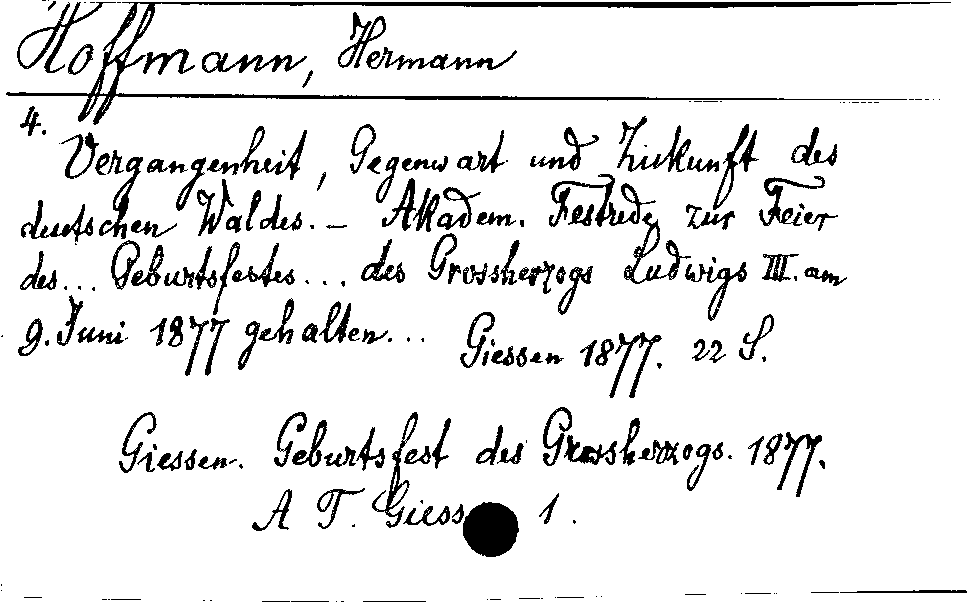 Hoffmann, Hermann
4.
Vergangenheit, Gegenwart und Zukunft des
deutschen Waldes. – Akadem. Festrede zur Feier
des... Geburtsfestes... des Grossherzogs Ludwigs III. am
9. Juni 1877 gehalten...
Giessen 1877. 22 S.
Giessen. Geburtsfest des Grossherzogs. 1877.
A T. Giess 1.